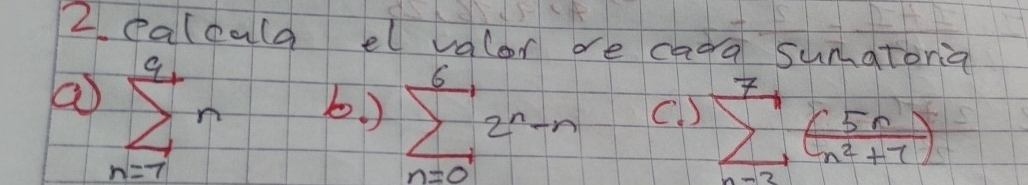 2. Calcula el valor de cada sumatoria
a) \sum_{n=7}^{9} n b.) \sum_{n=0}^{6} 2^n - n c.) \sum_{n=2}^{7} (\frac{5n}{n^2+7})